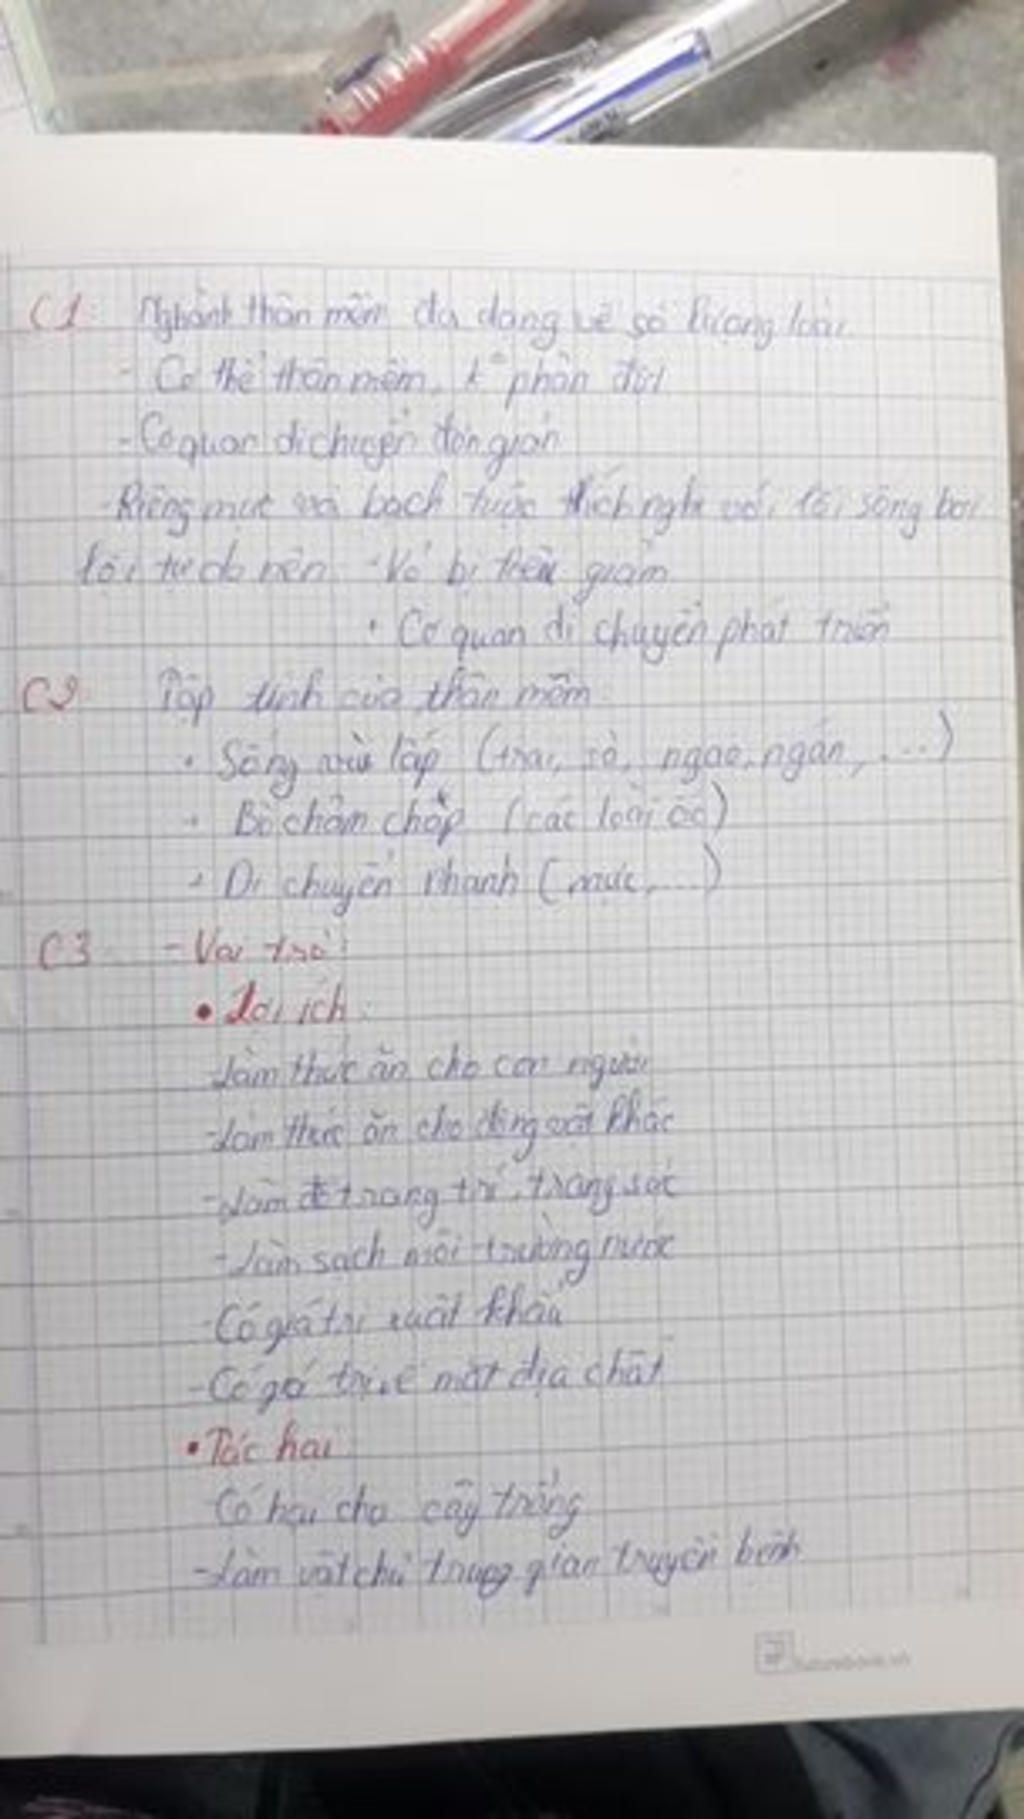 C1: Nghành thân mềm đa dạng về số lượng loài
- Cơ thể thân mềm, k° phân đốt
- Cơ quan di chuyển đơn giản
- Riêng mực và bạch tuộc thích nghi với lối sống bơi
lội tự do nên - Vỏ bị tiêu giảm
• Cơ quan di chuyển phát triển
C2 Tập tính của thân mềm:
• Sống vùi lấp (trai, sò, ngao, ngán, ....)
+ Bò chậm chạp (các loài ốc)
+ Di chuyển nhanh (mực, ....)
C3 - Vai trò:
• Lợi ích:
- Làm thức ăn cho con người
- Làm thức ăn cho động vật khác
- Làm đồ trang trí, trang sức
- Làm sạch môi trường nước
- Có giá trị xuất khẩu
- Có giá trị về mặt địa chất
• Tác hại
- Có hại cho cây trồng
- Làm vật chủ trung gian truyền bệnh